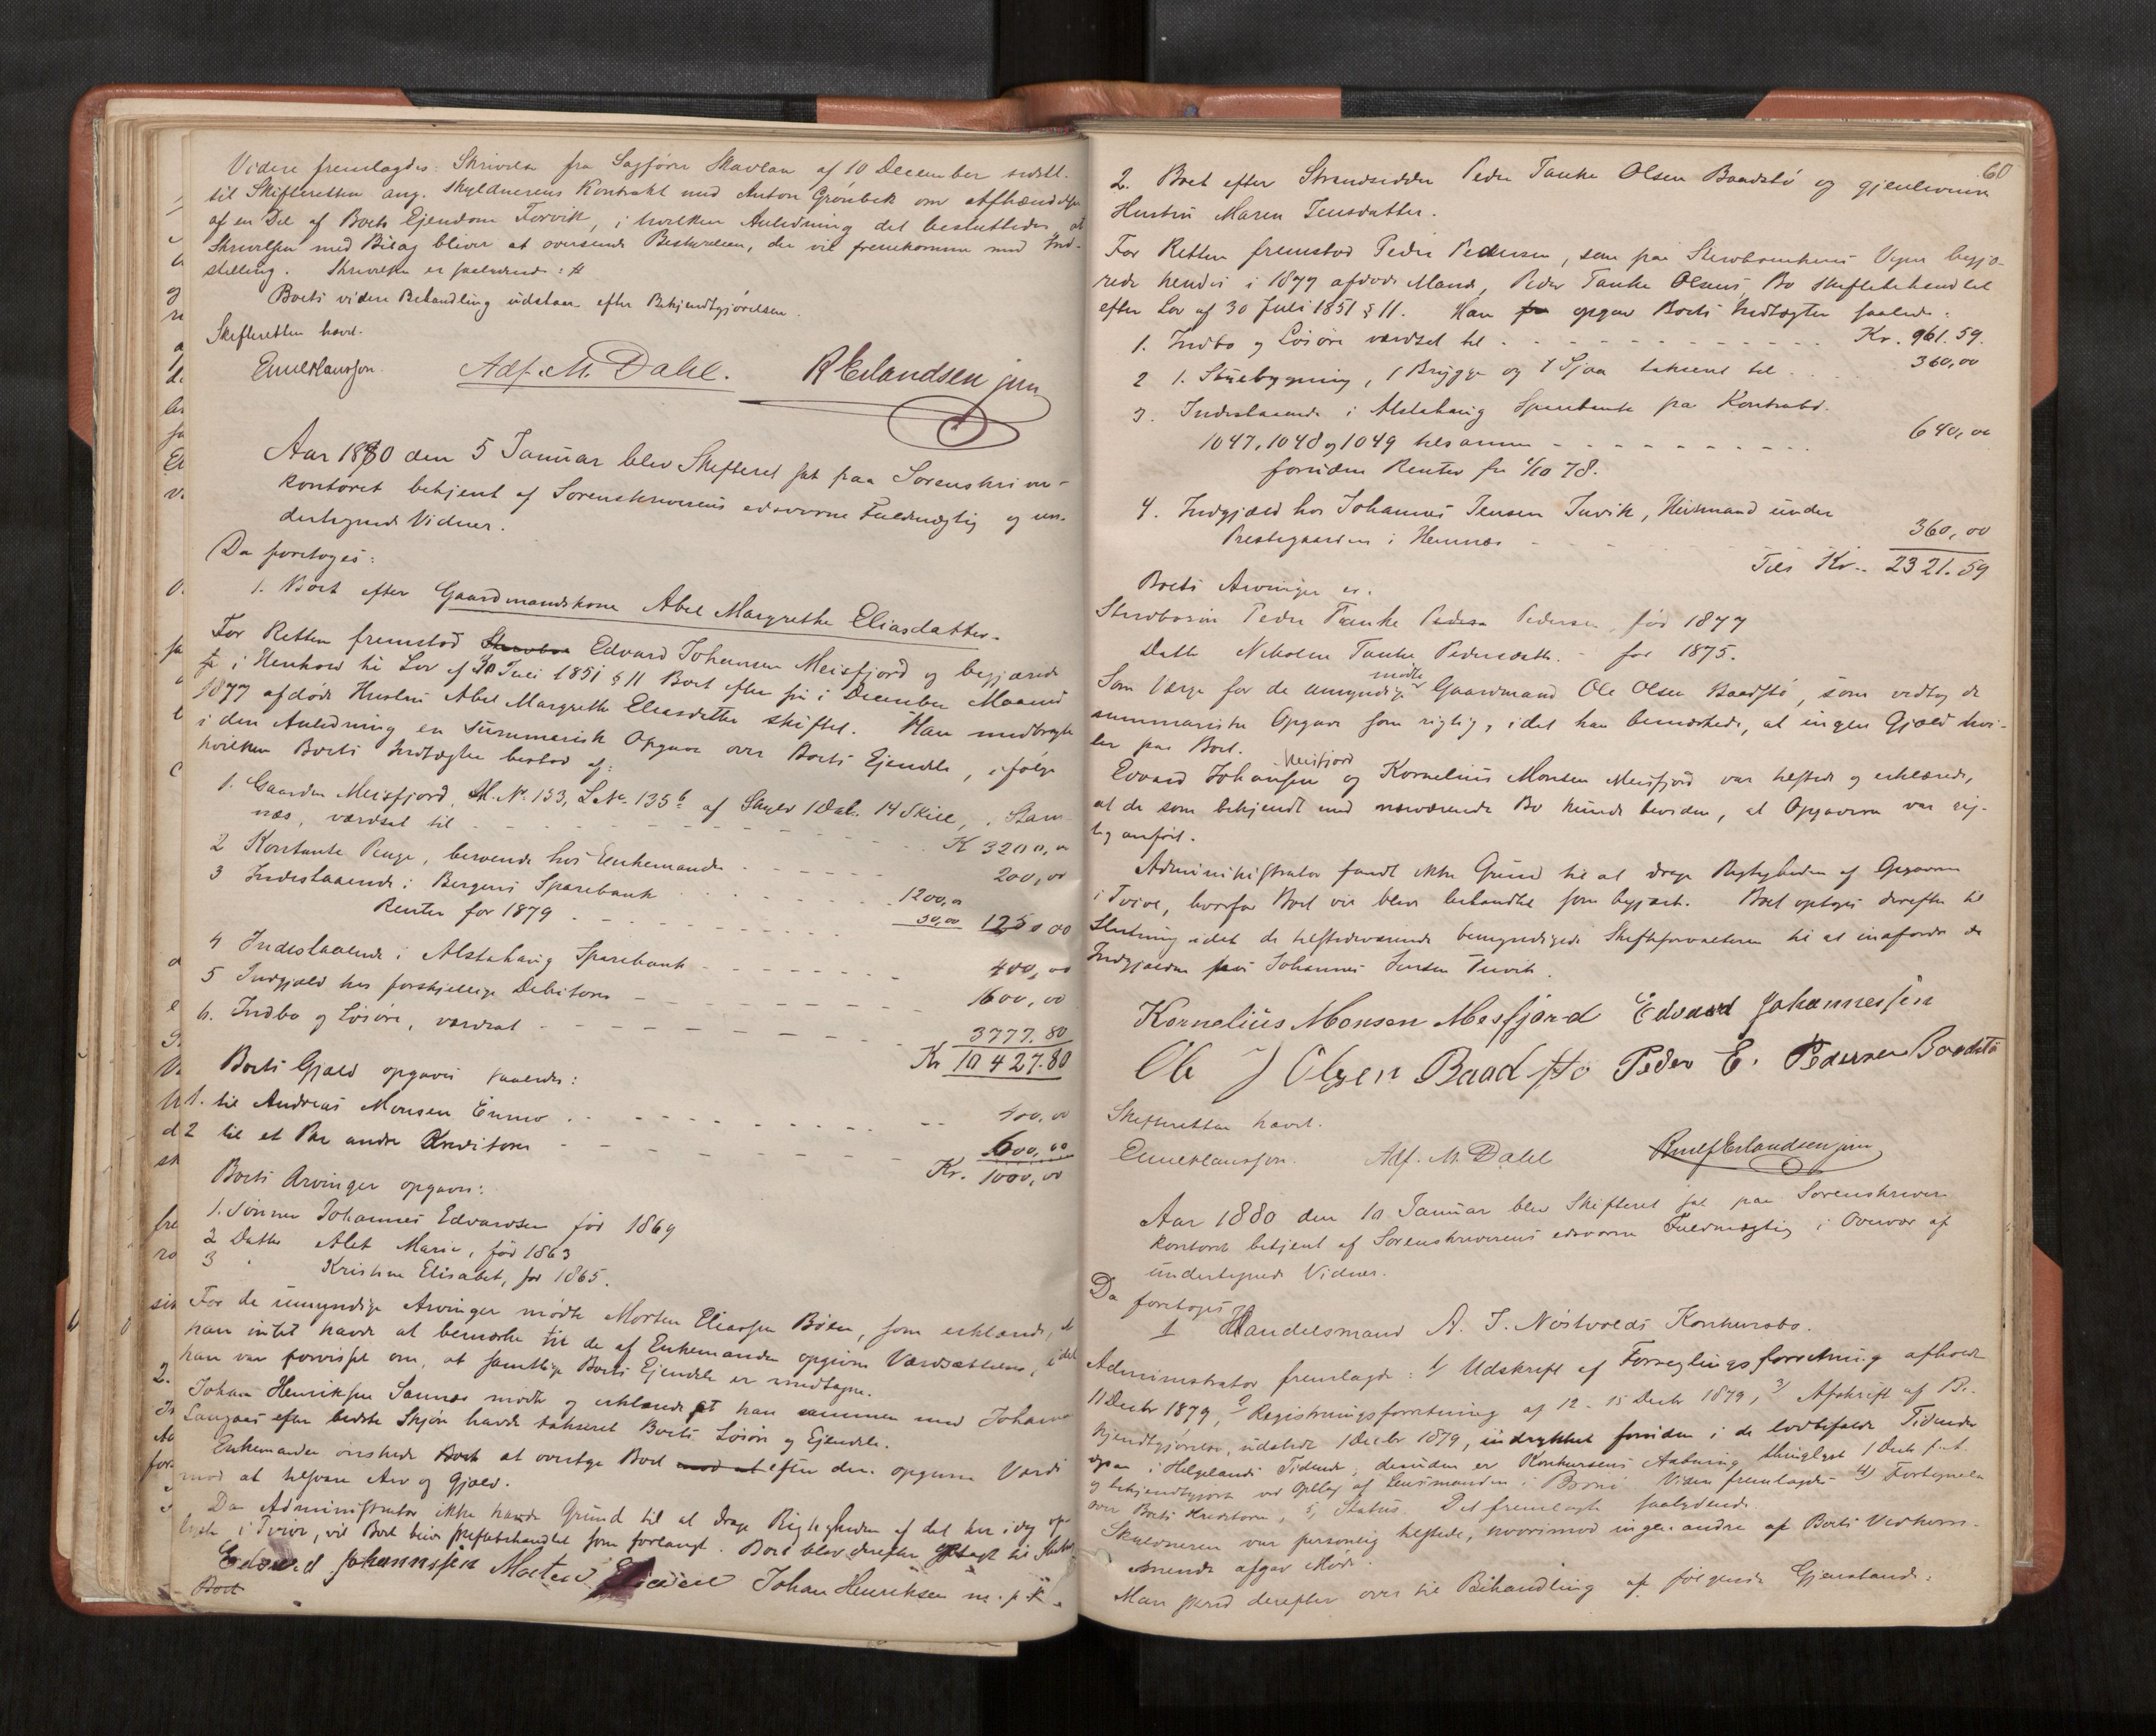 Videre fremlagdes: Skrivelse fra Sagfører Skavlan af 10 December sidstl.
til Skifteretten ang. Skyldnerens Kontrakt med Anton Grønbek om Afhændelse
af en Del af Boets Ejendom Forvik, i hvilken Anledning det besluttedes at
Skrivelsen med Bilag bliver at oversende Bestyrelsen, der vil fremkomme med Ind-
stilling. Skrivelsen er saalydende: #
Boets videre Behandling udstaar efter Bekjendtgjørelsen.
Skifteretten hævet.
Adf. M. Dahl. R Erlandsen jun
Aar 1880 den 5 Januar blev Skifteret sat paa Sorenskriver-
kontoret betjent af Sorenskriverens edsvorne Fuldmægtig og un-
dertegnede Vidner.
Da foretoges:
1. Boet efter Gaardmandskone Abel Margrethe Eliasdatter.
For Retten fremstod Edvard Johansen Meisfjord og begjærede
i Henhold til Lov af 30 Juli 1851 § 11 Boet efter sin i December Maaned
1877 afdøde Hustru Abel Margrethe Eliasdatter skiftet. Han medbragte
i den Anledning en summarisk Opgave over Boets Ejendele, ifølge
hvilken Boets Indtægter bestod af:
1. Gaarden Meisfjord, M. No. 153, L No. 135 b af Skyld 1 Dal. 14 Skill, i Stam-
næs, værdsat til K 3200,00
2 Kontante Penge, beroende hos Enkemanden 200,00
3 Indestaaende i Bergens Sparebank 1200,00
Renter for 1879 50,00 1250 00
4 Indestaaende i Alstahaug Sparebank 400,00
5 Indgjæld hos forskjellige Debitorer 1600,00
6. Indbo og Løsøre, værdsat 3777.80
Kr 10427.80
Boets Gjæld opgaves saaledes:
1. til Andreas Monsen Enmo 400,00
2 til et Par andre Kreditorer 600,00
Kr. 1000,00
Boets Arvinger opgaves:
1. Sønnen Johannes Edvardsen fød 1869
2 Datter Alet Marie, fød 1863
3 " Kristine Elisabet, fød 1865.
For de umyndige Arvinger mødte Morten Eliassen Bøen, som erklærede, at
han intet havde at bemærke til de af Enkemanden opgivne Værdsættelser, idet
han var forvisset om, at samtlige Boets Ejendele er medtagne.
Johan Henriksen Sannæs mødte og erklærede at han sammen med Johan
Langaas efter bedste Skjøn havde taxseret Boets Løsøre og Ejendele.
Enkemanden ønskede at overtage Boet efter den opgivne Værdi
mod at tilsvare Arv og Gjæld.
Da Administrator ikke havde Grund til at drage Rigtigheden af det her idag op-
lyste i Tvivl, vil Boet blive skiftebehandlet som forlangt. Boet blev derefter optaget til Slutn.
Edvard Johannessen Morten Johan Henriksen m. p. P.
Boet
60
2. Boet efter Strandsidder Peder Tanke Olsen Baadstø og gjenlevende
Hustru Maren Jensdatter.
For Retten fremstod Peder Pedersen, som paa Stervboenkens Vegne begjæ-
rede hendes i 1877 afdøde Mand, Peder Tanke Olsens, Bo skiftebehandlet
efter Lov af 30 Juli 1851 § 11. Han opgav Boets Indtægter saaledes:
1. Indbo og Løsøre værdsat til Kr. 961.59.
2 1. Stuebygning, 1 Brygge og 1 Sjaa taxseret til 360,00
3. Indestaaende i Alstahaug Sparebank paa Kontrabd.
1047, 1048 og 1049 tilsammen 640,00
foruden Renter fra 1/10 78.
4. Indgjæld hos Johannes Jensen Tuvik, Husmand under
Prestegaarden i Hemnæs 360,00
Tils Kr. 2321.59
Boets Arvinger er.
Stervbosøn Peder Tanke Pedersen, fød 1877
Datter Nikoline Tanke Pedersdatter. - fød 1875.
Som Værge for de umyndige mødte Gaardmand Ole Olsen Baadstø, som vedtog de
summariske Opgaver som rigtige, idet han bemærkede, at ingen Gjæld hvi-
ler paa Boet.
Edvard Johansen Meisfjord og Kornelius Monsen Meisfjord var tilstede og erklærede,
at de som bekjendt med nærværende Bo kunde bevidne, at Opgaverne var rig-
tig anført.
Administrator fandt ikke Grund til at drage Rigtigheden af Opgaverne
i Tvivl, hvorfor Boet vil blive behandlet som begjært. Boet optoges derefter til
Slutning idet de tilstedeværende bemyndigede Skifteforvalteren til at indfordre de
Indgjælden hos Johannes Jensen Tuvik.
Kornelius Monsen Mesfjord Edvard Johannessen
Ole J Olsen Baadstø Peder E. Pedersen Baadstø
Skifteretten hævet.
Adf. M. Dahl Rolf Erlandsen jun
Aar 1880 den 10 Januar blev Skifteret sat paa Sorenskriver-
kontoret betjent af Sorenskriverens edsvorne Fuldmægtig i Overvær af
undertegnede Vidner.
Da foretoges
1 Handelsmand A. J. Nøstvolds Konkursbo.
Administrator fremlagde: 1/ Udskrift af Forseglingsforretning afholdt
11 Decbr 1879, 2/ Registreringsforretning af 12 - 15 Decbr 1879, 3/ Afskrift af Be-
kjendtgjørelse, udstedt 1 Decbr 1879, indrykket foruden i de lovbefalede Tidender
ogsaa i Helgelands Tidende; desuden er Konkursens Aabning thinglyst 1 Decb f. A.
og bekjendtgjort ved Opslag af Lensmanden i Brønø. Videre fremlagdes 4) Fortegnelse
over Boets Kreditorer, 5, Status. Det fremlagte saalydende.
Skyldneren var personlig tilstede, hvorimod ingen andre af Boets Vedkom-
mende afgav Møde.
Man skred derefter over til Behandling af følgende Gjenstande: